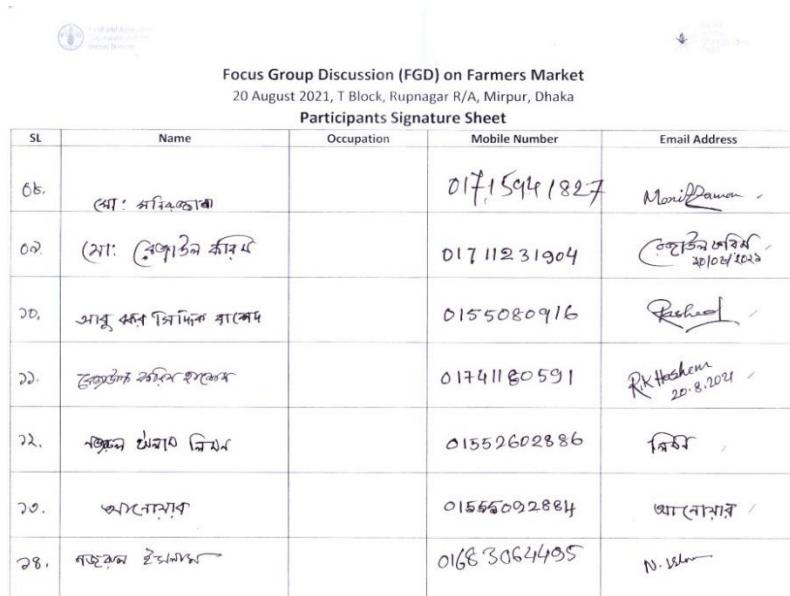 Focus Group Discussion (FGD) on Farmers Market
20 August 2021, T Block, Rupnagar R/A, Mirpur, Dhaka
Participants Signature Sheet
SL Name Occupation Mobile Number Email Address
০৮. মো: মনিরুজ্জামান 01715941827 Moniruzzaman
০৯. মো: রেজাউল করিম 01711231904 রেজাউল করিম
২০/০৮/২০২১
১০. আবু বকর সিদ্দিক রাশেদ 0155080916 Rashed
১১. রেজাউল করিম হাশেম 01741180591 R.K Hashem
20.8.2021
১২. লিমন 01552602886 লিমন
১৩. আনোয়ার 01555092884 আনোয়ার
১৪. নজরুল ইসলাম 01683064495 N. Islam